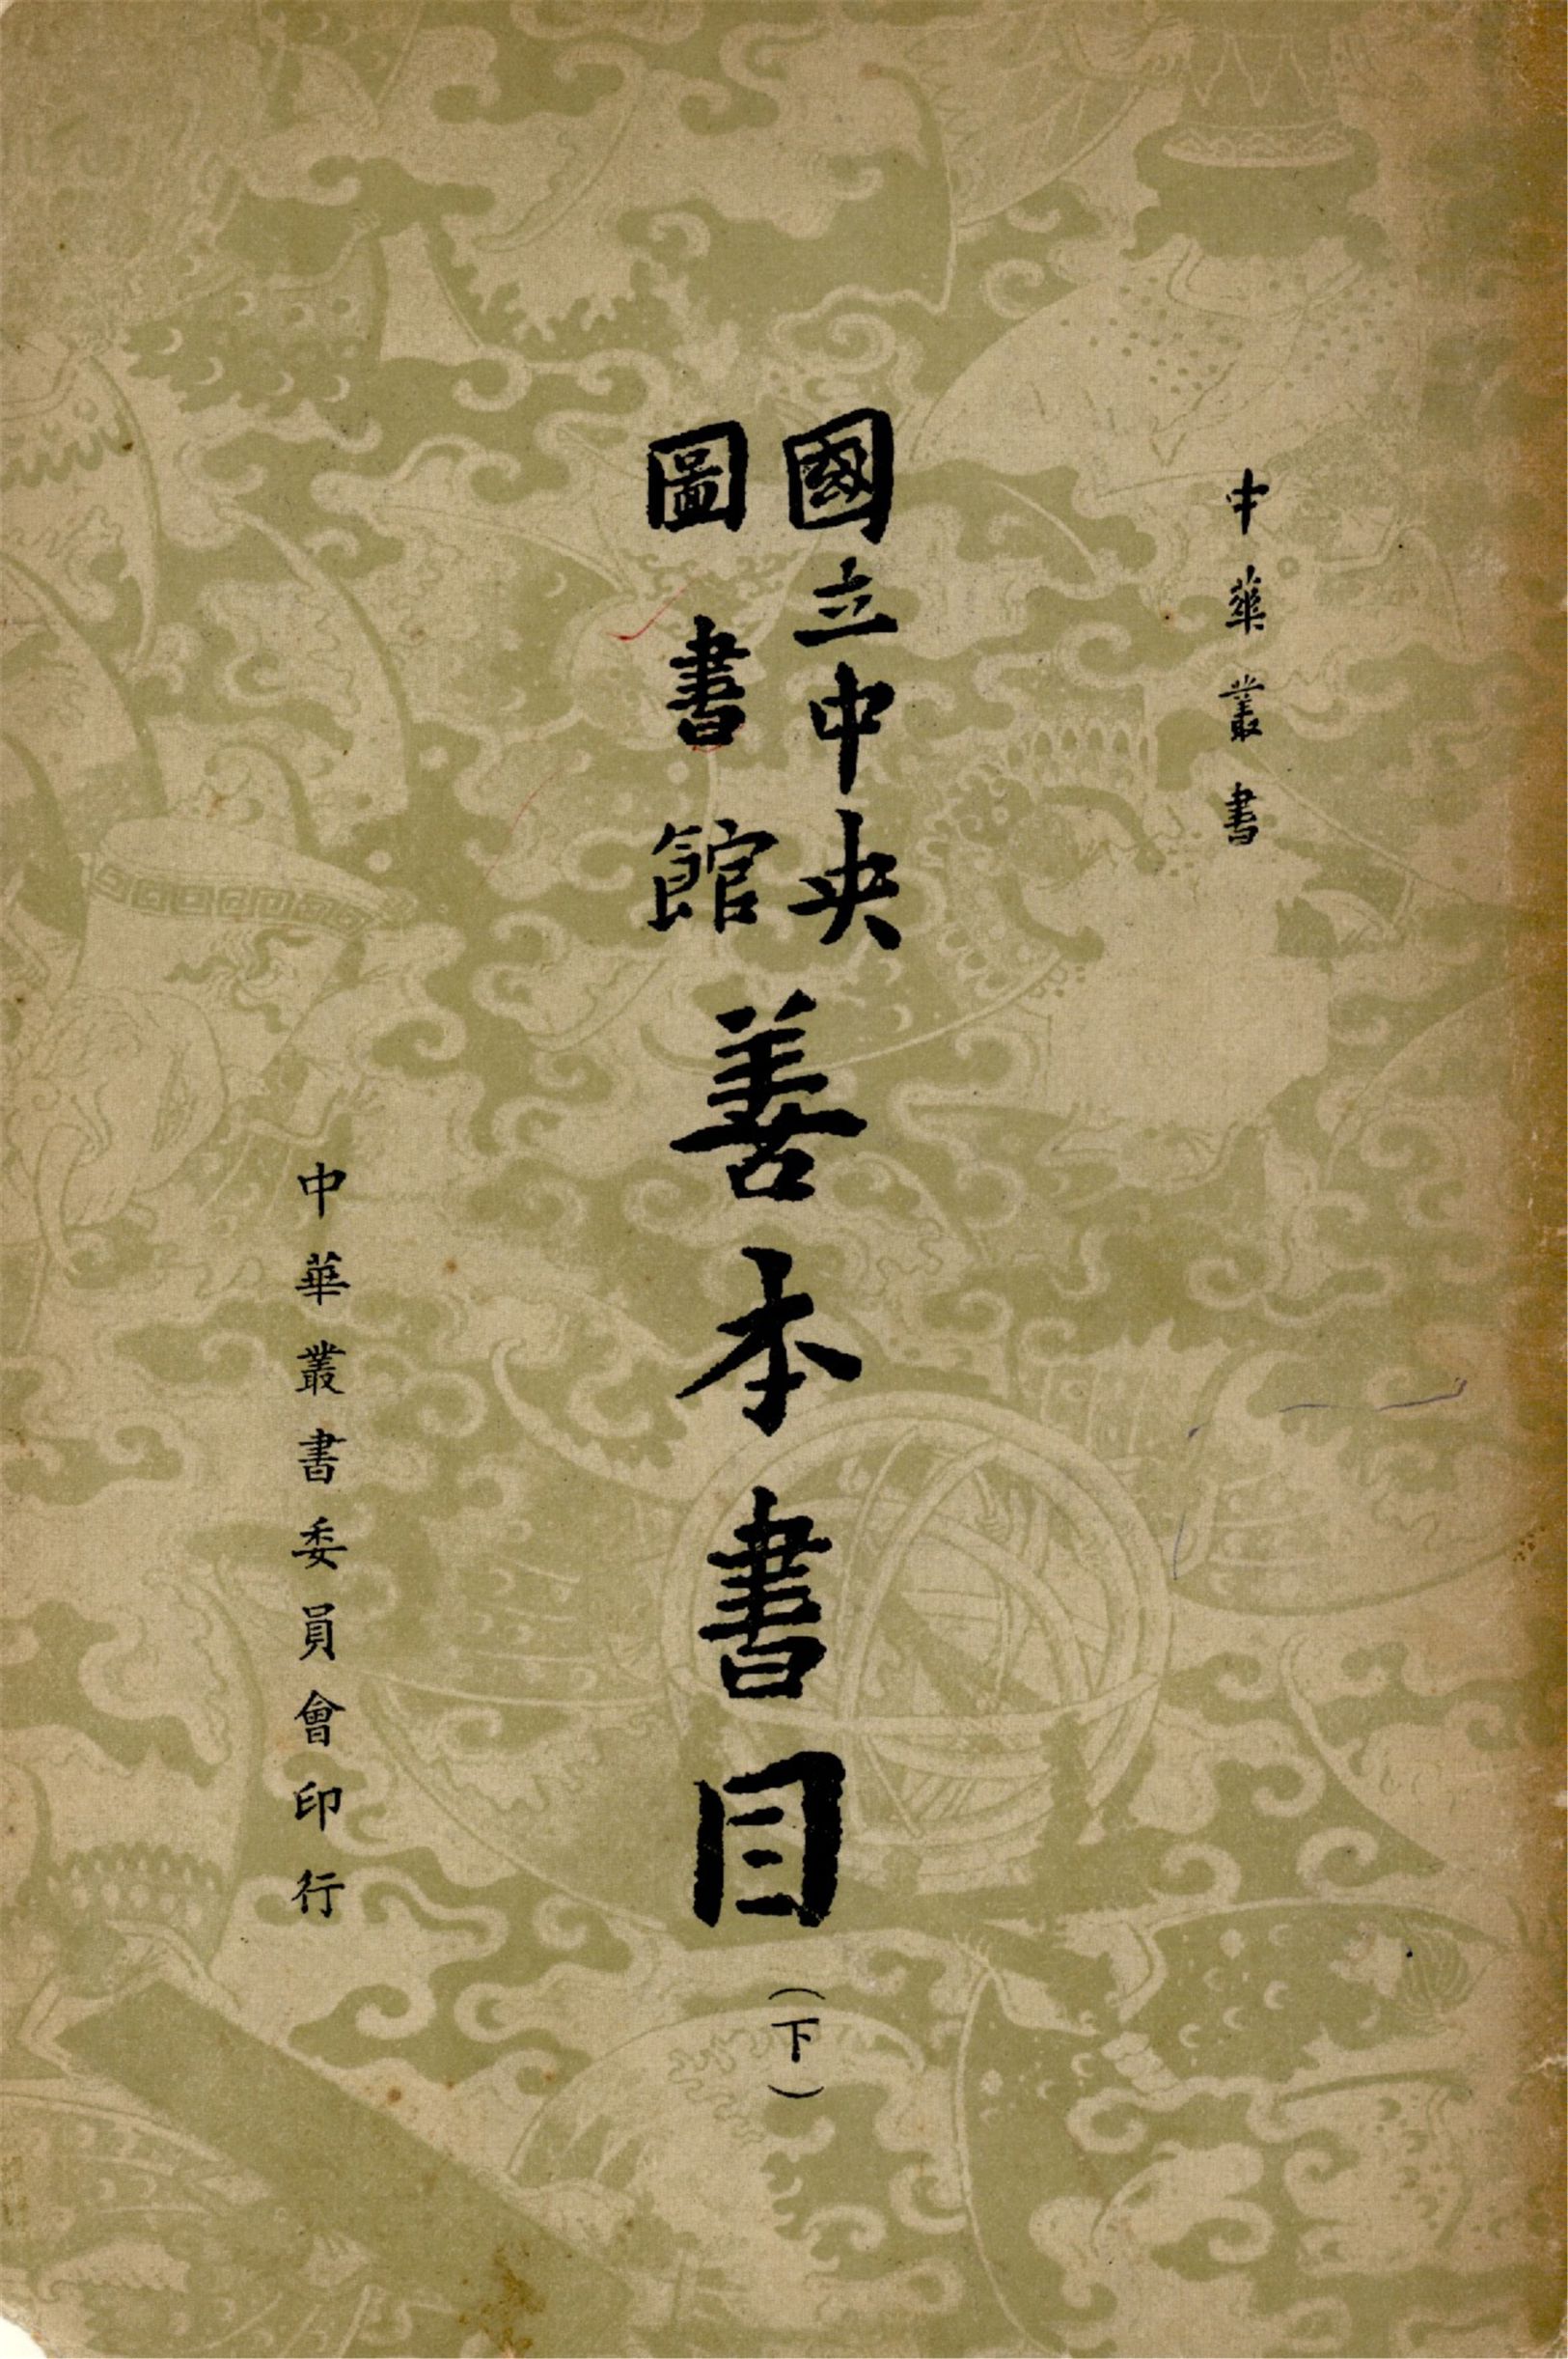 中華叢書
國立中央
圖書館
善本書目
（下）
中華叢書委員會印行